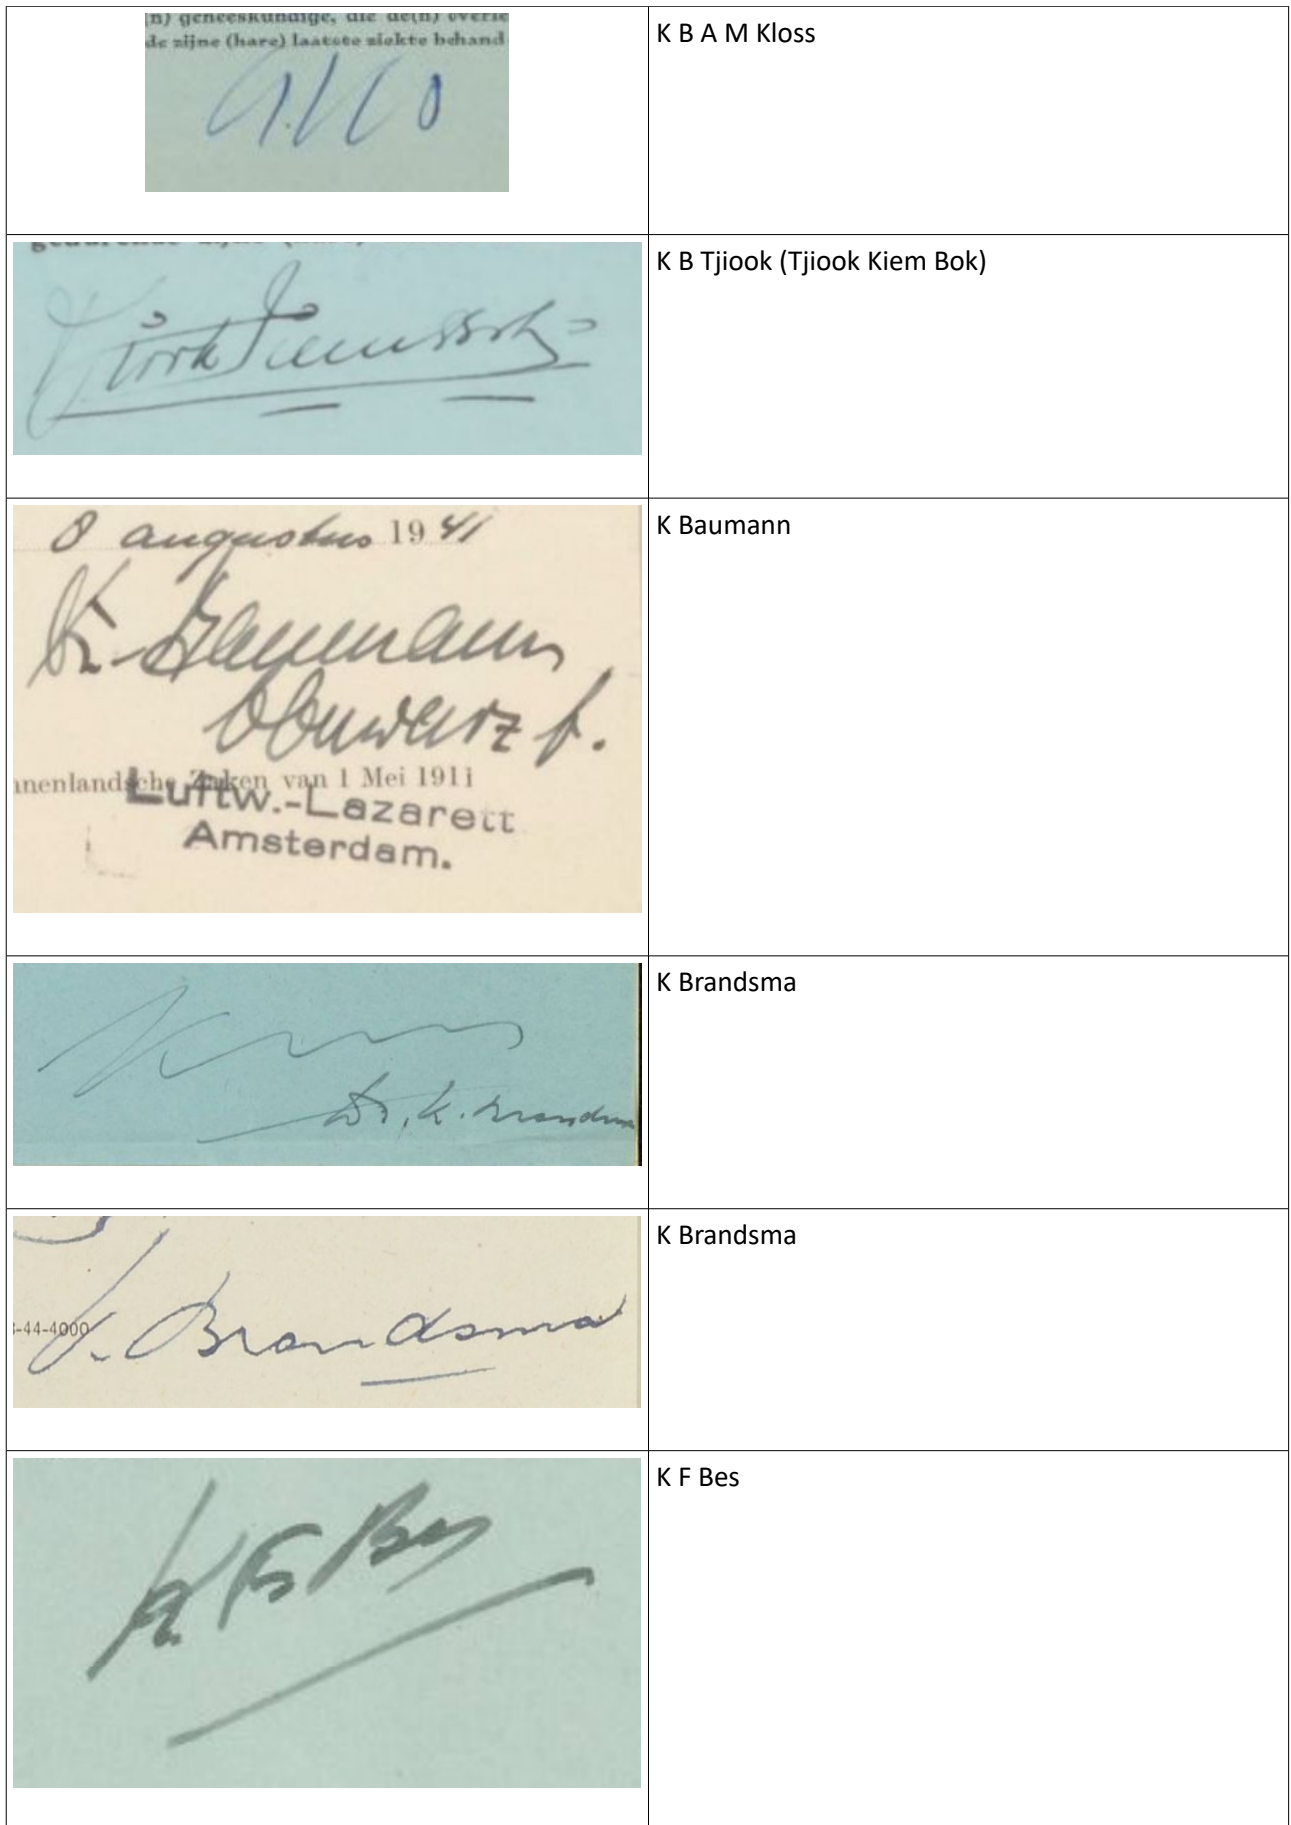 (n) geneeskundige, die de(n) overle
de zijne (hare) laatste ziekte behand
K B A M Kloss
K B Tjiook (Tjiook Kiem Bok)
Tjiook Kiem Bok
8 augustus 1941
K Baumann
K. Baumann
Oberarzt
nnenlandsche Zaken van 1 Mei 1911
Luftw.-Lazarett
Amsterdam.
K Brandsma
Dr. K. Brandsma
K Brandsma
-44-4000
K. Brandsma
K F Bes
K F Bes